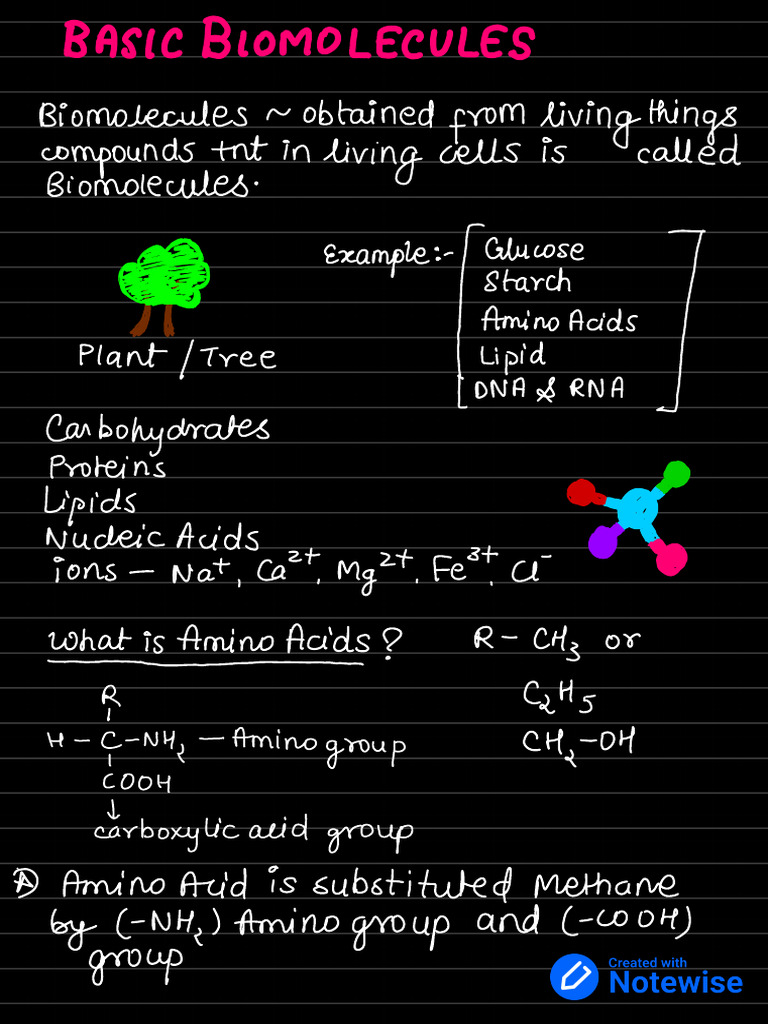 BASIC BIOMOLECULES
Biomolecules ~ obtained from living things
compounds tnt in living cells is called
Biomolecules.
Example:- Glucose
Starch
Amino Acids
Lipid
DNA & RNA
Plant / Tree
Carbohydrates
Proteins
Lipids
Nucleic Acids
ions — Na⁺, Ca²⁺, Mg²⁺, Fe³⁺, Cl⁻
What is Amino Acids?
R
H – C – NH₂ — Amino group
COOH
↓
carboxylic acid group
R – CH₃ or
C₂H₅
CH₂–OH
A) Amino Acid is substituted Methane
by (–NH₂) Amino group and (–COOH)
group
Created with
Notewise